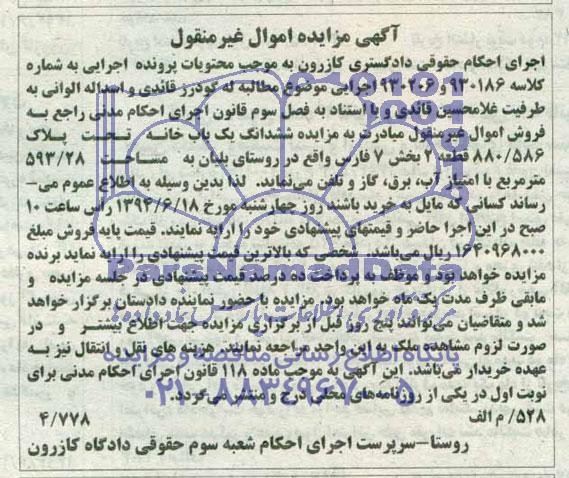 آگهی مزایده اموال غیرمنقول
اجرای احکام حقوقی دادگستری کازرون به موجب محتویات پرونده اجرایی به شماره
کلاسه ۹۳۰۱۸۶ و ۹۳۰۲۰۶ اجرایی موضوع مطالبه له گودرز قائدی و اسداله الوانی به
طرفیت غلامحسین قائدی و با استناد به فصل سوم قانون اجرای احکام مدنی راجع به
فروش اموال غیرمنقول مبادرت به مزایده ششدانگ یک باب خانه تحت پلاک
۸۸۰/۵۸۶ قطعه ۲ بخش ۷ فارس واقع در روستای بلیان به مساحت ۵۹۳/۲۸
مترمربع با امتیاز آب، برق، گاز و تلفن می‌نماید. لذا بدین وسیله به اطلاع عموم می-
رساند کسانی که مایل به خرید باشند روز چهارشنبه مورخ ۱۳۹۴/۶/۱۸ راس ساعت ۱۰
صبح در این اجرا حاضر و قیمتهای پیشنهادی خود را ارایه نمایند. قیمت پایه فروش مبلغ
۱۶۴۰۹۶۸۰۰۰ ریال می‌باشد. شخصی که بالاترین قیمت پیشنهادی را ارایه نماید برنده
مزایده خواهد بود و موظف به پرداخت ده درصد قیمت پیشنهادی در جلسه مزایده و
مابقی ظرف مدت یک ماه خواهد بود. مزایده با حضور نماینده دادستان برگزار خواهد
شد و متقاضیان می‌توانند پنج روز قبل از برگزاری مزایده جهت اطلاع بیشتر و در
صورت لزوم مشاهده ملک به این واحد مراجعه نمایند. هزینه های نقل و انتقال نیز به
عهده خریدار می‌باشد. این آگهی به موجب ماده ۱۱۸ قانون اجرای احکام مدنی برای
نوبت اول در یکی از روزنامه‌های محلی درج و منتشر می‌گردد.
۵۲۸/ م الف ۴/۷۷۸
روستا-سرپرست اجرای احکام شعبه سوم حقوقی دادگاه کازرون
ParsNamadData
مرکز فرآوری اطلاعات پارس نماد داده
پایگاه اطلاع رسانی مناقصه و مزایده
۰۲۱-۸۸۳۴۹۶۷۰-۵